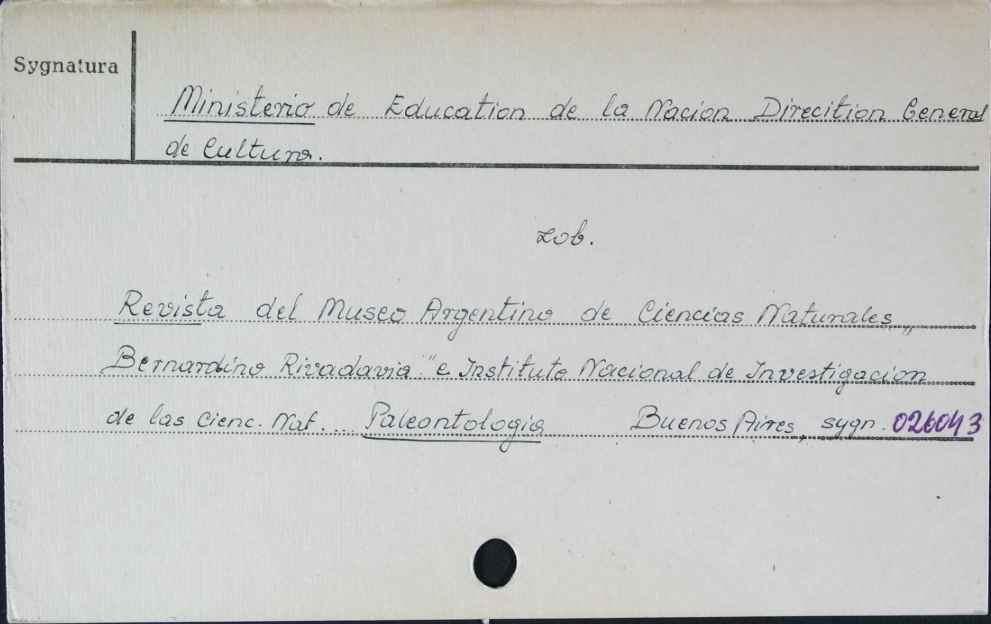 Sygnatura
Ministerio de Education de la Nacion Direcition General
de Cultura.
zob.
Revista del Museo Argentino de Ciencias Naturales „
Bernardino Rivadavia" e Instituto Nacional de Investigacion
de las Cienc. Nat. .. Paleontologia Buenos Aires, sygn. 026043